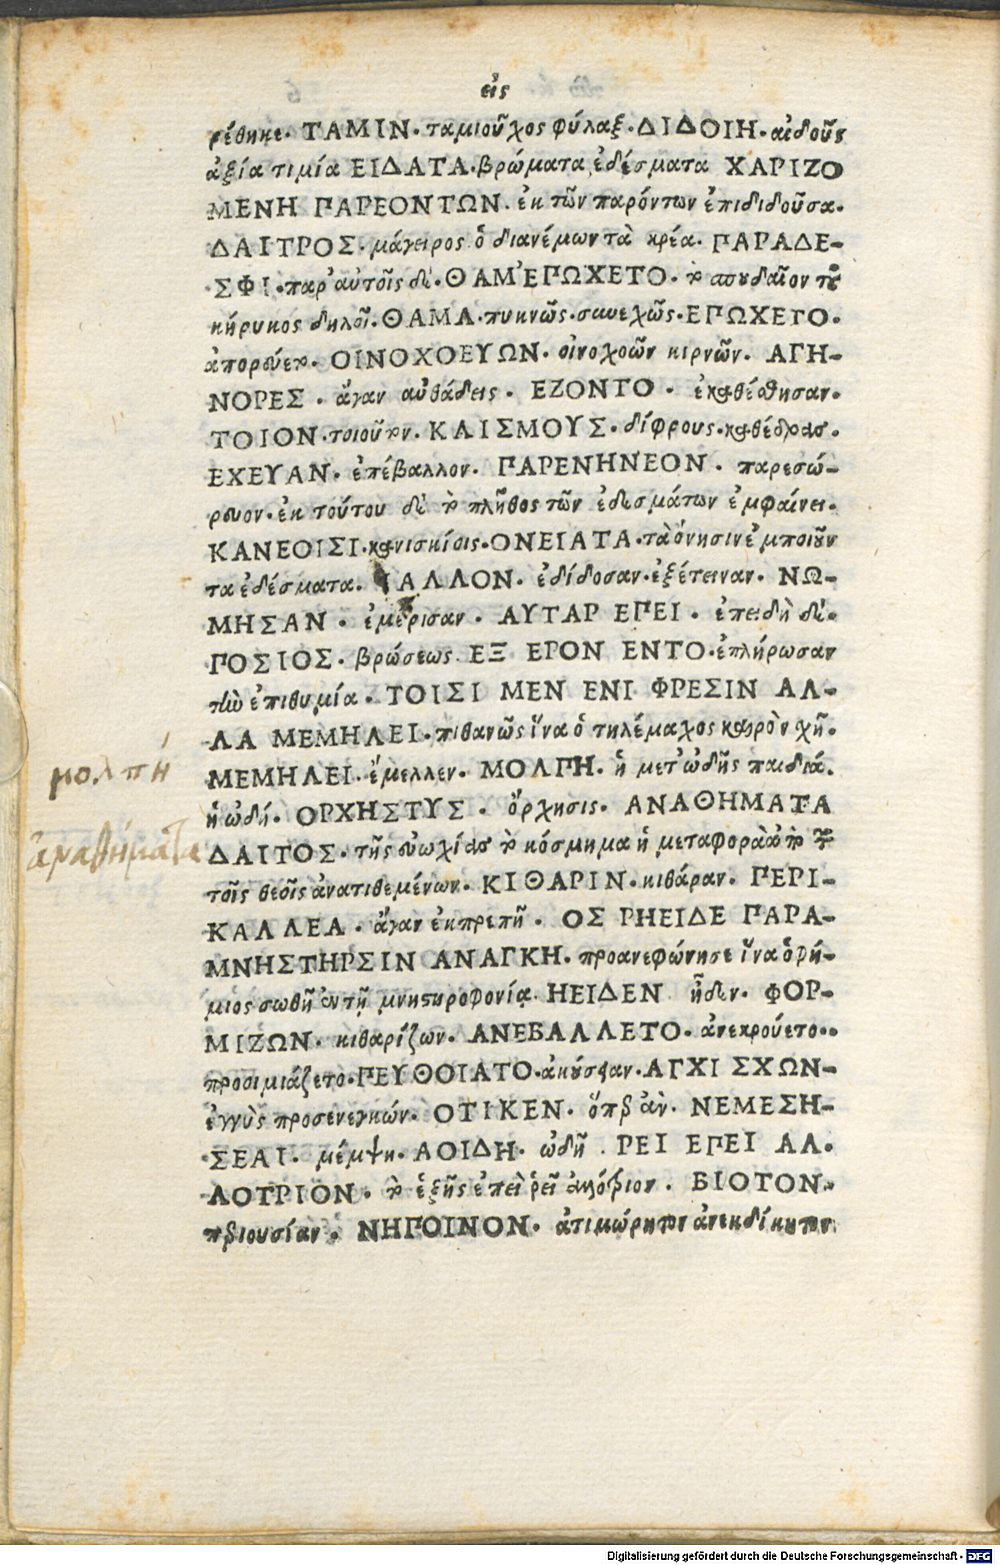 εἰς
ρέθηκε. ΤΑΜΙΝ. ταμιοῦχος φύλαξ. ΔΙΔΟΙΗ. αἰδοῦς
ἀξία τιμία ΕΙΔΑΤΑ. βρώματα ἐδέσματα ΧΑΡΙΖΟ
ΜΕΝΗ ΠΑΡΕΟΝΤΩΝ. ἐκ τῶν παρόντων ἐπιδιδοῦσα.
ΔΑΙΤΡΟΣ. μάγειρος ὁ διανέμων τὰ κρέα. ΠΑΡΑΔΕ-
ΣΦΙ. παρ' αὐτοῖς δέ. ΘΑΜ' ΕΠΩΧΕΤΟ. τὸ σπουδαῖον τοῦ
κήρυκος δηλοῖ. ΘΑΜΑ. πυκνῶς. συνεχῶς. ΕΠΩΧΕΤΟ.
ἀπορεύετο. ΟΙΝΟΧΟΕΥΩΝ. οἰνοχοῶν κιρνῶν. ΑΓΗ-
ΝΟΡΕΣ. ἄγαν αὐθάδεις. ΕΖΟΝΤΟ. ἐκαθέσθησαν.
ΤΟΙΟΝ. τοιοῦτον. ΚΛΙΣΜΟΥΣ. δίφρους. καθέδρας.
ΕΧΕΥΑΝ. ἐπέβαλλον. ΠΑΡΕΝΗΝΕΟΝ. παρεσώ-
ρευον. ἐκ τούτου δὲ τὸ πλῆθος τῶν ἐδεσμάτων ἐμφαίνει.
ΚΑΝΕΟΙΣΙ. κανισκίοις. ΟΝΕΙΑΤΑ. τὰ ὄνησιν ἐμποιοῦν
τα ἐδέσματα. ΙΑΛΛΟΝ. ἐδίδοσαν. ἐξέτειναν. ΝΩ-
ΜΗΣΑΝ. ἐμέρισαν. ΑΥΤΑΡ ΕΠΕΙ. ἐπειδὴ δέ.
ΠΟΣΙΟΣ. βρώσεως. ΕΞ ΕΡΟΝ ΕΝΤΟ. ἐπλήρωσαν
τὴν ἐπιθυμία. ΤΟΙΣΙ ΜΕΝ ΕΝΙ ΦΡΕΣΙΝ ΑΛ-
ΛΑ ΜΕΜΗΛΕΙ. πιθανῶς ἵνα ὁ τηλέμαχος καιρὸν χῇ.
ΜΕΜΗΛΕΙ. ἔμελλεν. ΜΟΛΠΗ. ἡ μετ' ὠδῆς παιδιά.
ἡ ὠδή. ΟΡΧΗΣΤΥΣ. ὄρχησις. ΑΝΑΘΗΜΑΤΑ
ΔΑΙΤΟΣ. τῆς εὐωχίας τὸ κόσμημα ἡ μεταφορὰ ἀπὸ τῶν
τοῖς θεοῖς ἀνατιθεμένων. ΚΙΘΑΡΙΝ. κιθάραν. ΠΕΡΙ-
ΚΑΛΛΕΑ. ἄγαν ἐκπρεπῆ. ΟΣ ΡΗΕΙΔΕ ΠΑΡΑ-
ΜΝΗΣΤΗΡΣΙΝ ΑΝΑΓΚΗ. προανεφώνησε ἵνα ὁ φή-
μιος σωθῇ ἐν τῇ μνηστηροφονίᾳ. ΗΕΙΔΕΝ ᾖδεν. ΦΟΡ-
ΜΙΖΩΝ. κιθαρίζων. ΑΝΕΒΑΛΛΕΤΟ. ἀνεκρούετο.
προοιμιάζετο. ΠΕΥΘΟΙΑΤΟ. ἀκούσειαν. ΑΓΧΙ ΣΧΩΝ-
ἐγγὺς προσενεγκών. ΟΤΙΚΕΝ. ὅπερ ἄν. ΝΕΜΕΣΗ-
ΣΕΑΙ. μέμψῃ. ΑΟΙΔΗ. ὠδῆ. ΡΕΙ ΕΠΕΙ ΑΛ.
ΛΟΤΡΙΟΝ. τὸ ἑξῆς ἐπεὶ ῥεῖ ἀλλότριον. ΒΙΟΤΟΝ.
περιουσίαν. ΝΗΠΟΙΝΟΝ. ἀτιμώρητον ἀνεκδίκητον
μολπή
ἀναθήματα
Digitalisierung gefördert durch die Deutsche Forschungsgemeinschaft - DFG